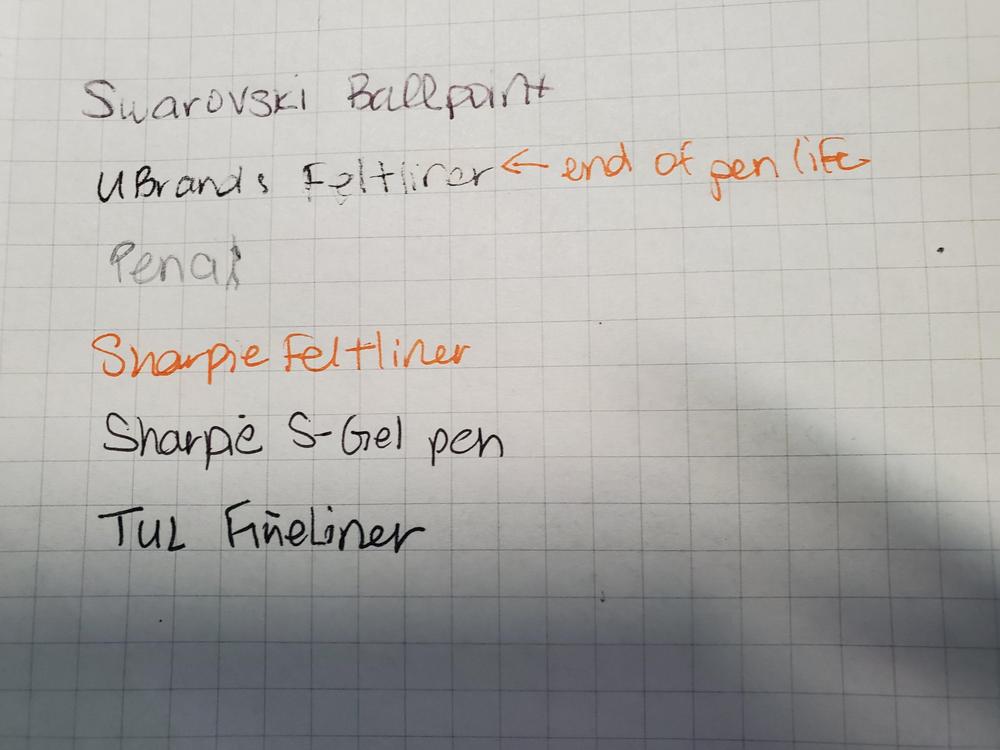 Swarovski Ballpoint
UBrands Feltliner ← end of pen life
Pencil
Sharpie Feltliner
Sharpie S-Gel pen
TUL Fineliner